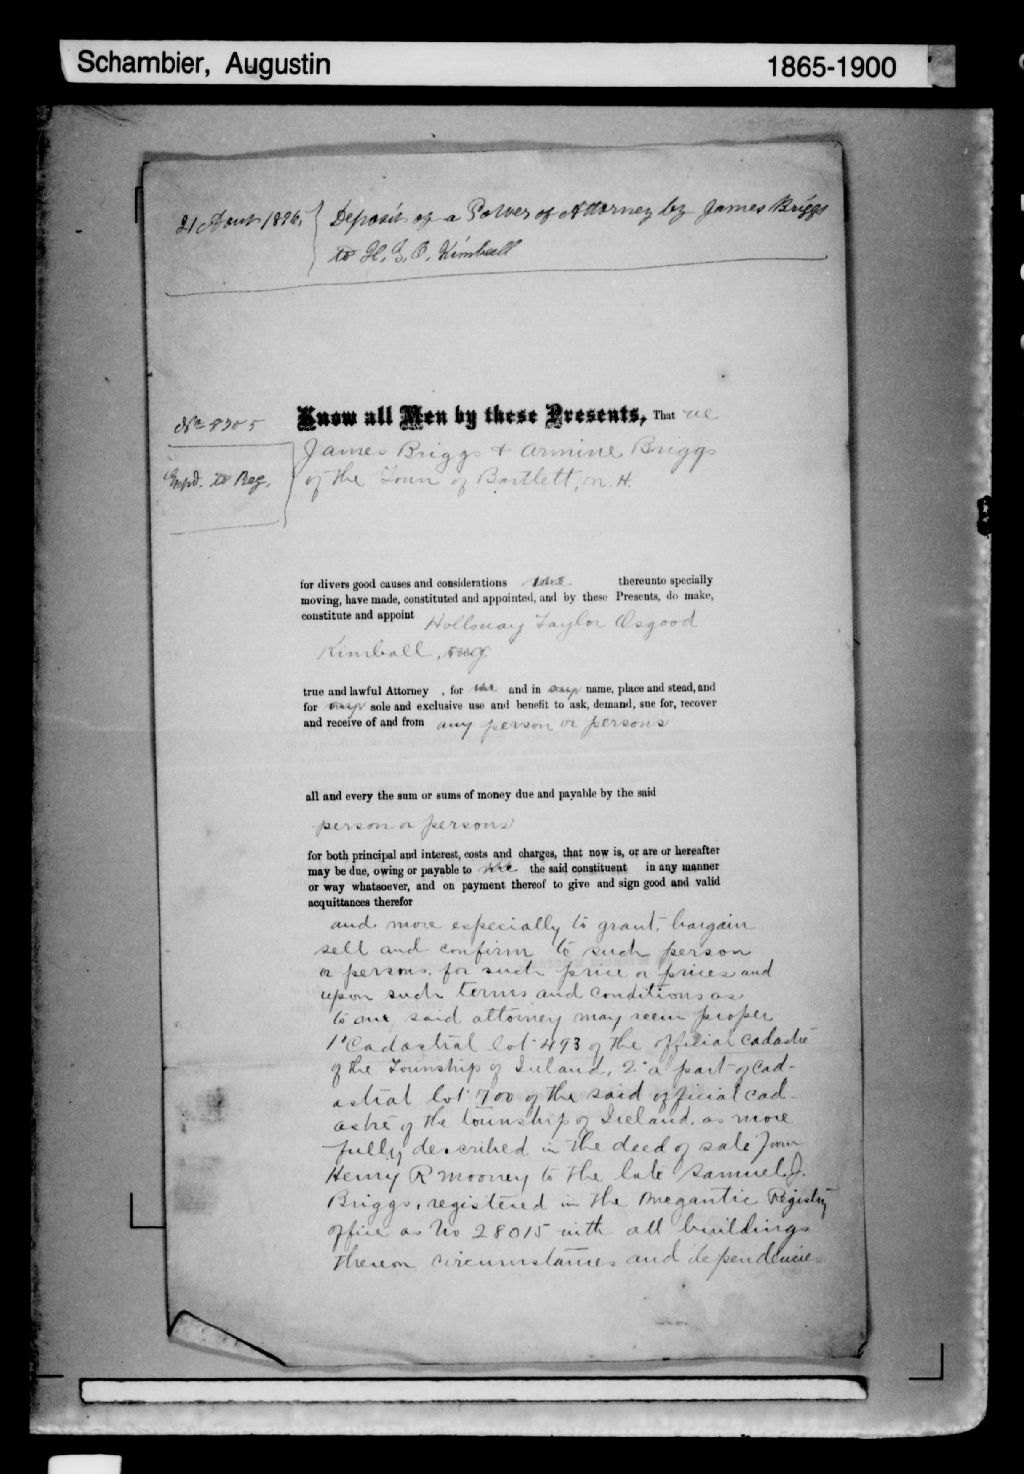 Schambier, Augustin 1865-1900
21 Aout 1896. Deposit of a Power of Attorney by James Briggs
to H. T. O. Kimball
No 8305
Know all Men by these Presents, That we
James Briggs & Armine Briggs
Expd. to Reg.
of the Town of Bartlett, N. H.
for divers good causes and considerations thereunto specially
moving, have made, constituted and appointed, and by these Presents, do make,
constitute and appoint Holloway Taylor Osgood
Kimball, our
true and lawful Attorney , for and in our name, place and stead, and
for our sole and exclusive use and benefit to ask, demand, sue for, recover
and receive of and from any person or persons
all and every the sum or sums of money due and payable by the said
person or persons
for both principal and interest, costs and charges, that now is, or are or hereafter
may be due, owing or payable to the said constituent in any manner
or way whatsoever, and on payment thereof to give and sign good and valid
acquittances therefor
and more especially to grant, bargain
sell and confirm to such person
or persons, for such price or prices and
upon such terms and conditions as
to our said attorney may seem proper
1° Cadastral lot 493 of the official cadastre
of the Township of Ireland, 2° a part of Cad-
astral lot 700 of the said official cad-
astre of the township of Ireland, as more
fully described in the deed of sale from
Henry R Mooney to the late Samuel J.
Briggs, registered in the Megantic Registry
office as No 28015 with all buildings
thereon circumstances and dependencies